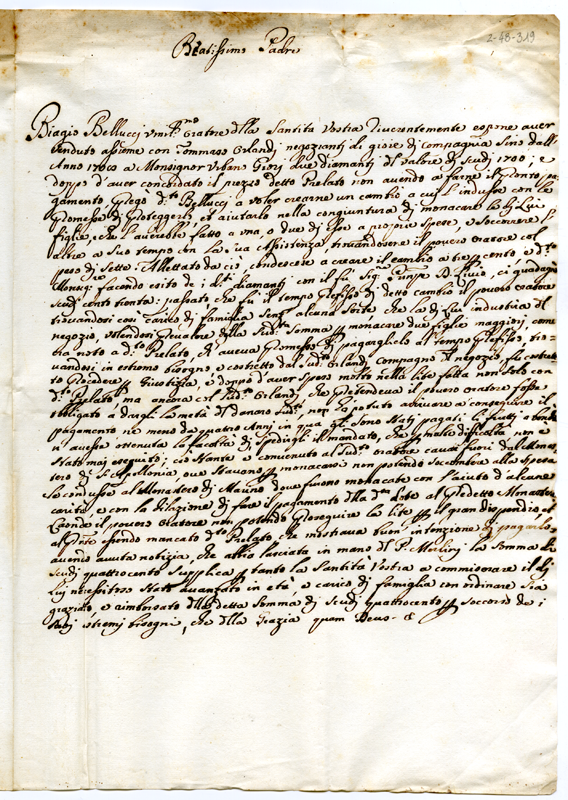 2-48-319
Beatissimo Padre
Biagio Bellucci umil.mo Oratore della Santità Vostra riverentemente espone aver
venduto assieme con Tommaso Orlandi negozianti di gioie di Compagnia sino dall
Anno 1700 a Monsignor Urban due diamanti di valore di Scudi 1700; e
doppo d'aver concordato il prezzo detto Prelato non avendo a farne il pronto pa
gamento pregò d.to Bellucci a voler crearne un cambio a cui l'indusse con le
promesse di proteggerlo, et aiutarlo nella congiuntura di monacare le di Lui
figlie, che l'averebbe fatto a una, o due di esse a proprie spese, e soccorrere l
altre a suo tempo con la sua Assistenza, trovandosene il povero oratore col
peso di Sette: Allettato da ciò condescese a creare il cambio a tre per cento, e d.to
Monsig.re facendo esito de i d.ti diamanti con il fu Sig.r D. Livio, ci guadagnò
scudi cento trenta: passato che fu il tempo prefisso di detto cambio il povero oratore
trovandosi così carico di famiglia senz'alcuna sorte che la di lui industria del
negozio, volendosi prevalere della sud.a somma per monacare due figlie maggiori, come
era noto a d.o Prelato, che aveva promesso di pagarglielo al tempo prefisso, tro-
vandosi in estremo bisogno, e costretto dal sud.o Orlandi compagno di negozio, fu costretto
procedere per Giustizia, e doppo d'aver speso molto nella lite fatta non solo con
d.to Prelato, ma ancora col sud.o Orlandi, che pretendeva il povero oratore fosse
obligato a dargli la metà del denaro sud.o, non ha potuto arrivare a conseguire il
pagamento, ne meno da quatro Anni in qua gli sono stati pagati li frutti, e benche
n'avesse ottenuta la facoltà di spedirgli il mandato, che per molte difficoltà non è
stato mai eseguito; ciò stante è convenuto al sud.o oratore cavar fuori dal Monas
tero di S. Apollonia, ove stavano per monacarsi non potendo soccombere alla spesa
Se condusse al Monastero di dove furono monacate con l'aiuto d'alcune
carità, e con la di fare il pagamento della d.a dote al predetto Monastero
il povero Oratore non potendo proseguire la lite per il gran dispendio, et
al pñte essendo mancato d.to Prelato, che mostrava buon'intenzione di pagarlo,
avendo avuta notizia, che abbia lasciata in mano del P. Merlini la somma di
scudi quattrocento supplica per tanto la Santità Vostra a commisionare il di
Lui stato avanzato in età, e carico di famiglia con ordinare sia
graziato, e rimborsato della detta somma di scudi quattrocento per soccorso de i
suoi estremi bisogni, che della Grazia quam Deus &